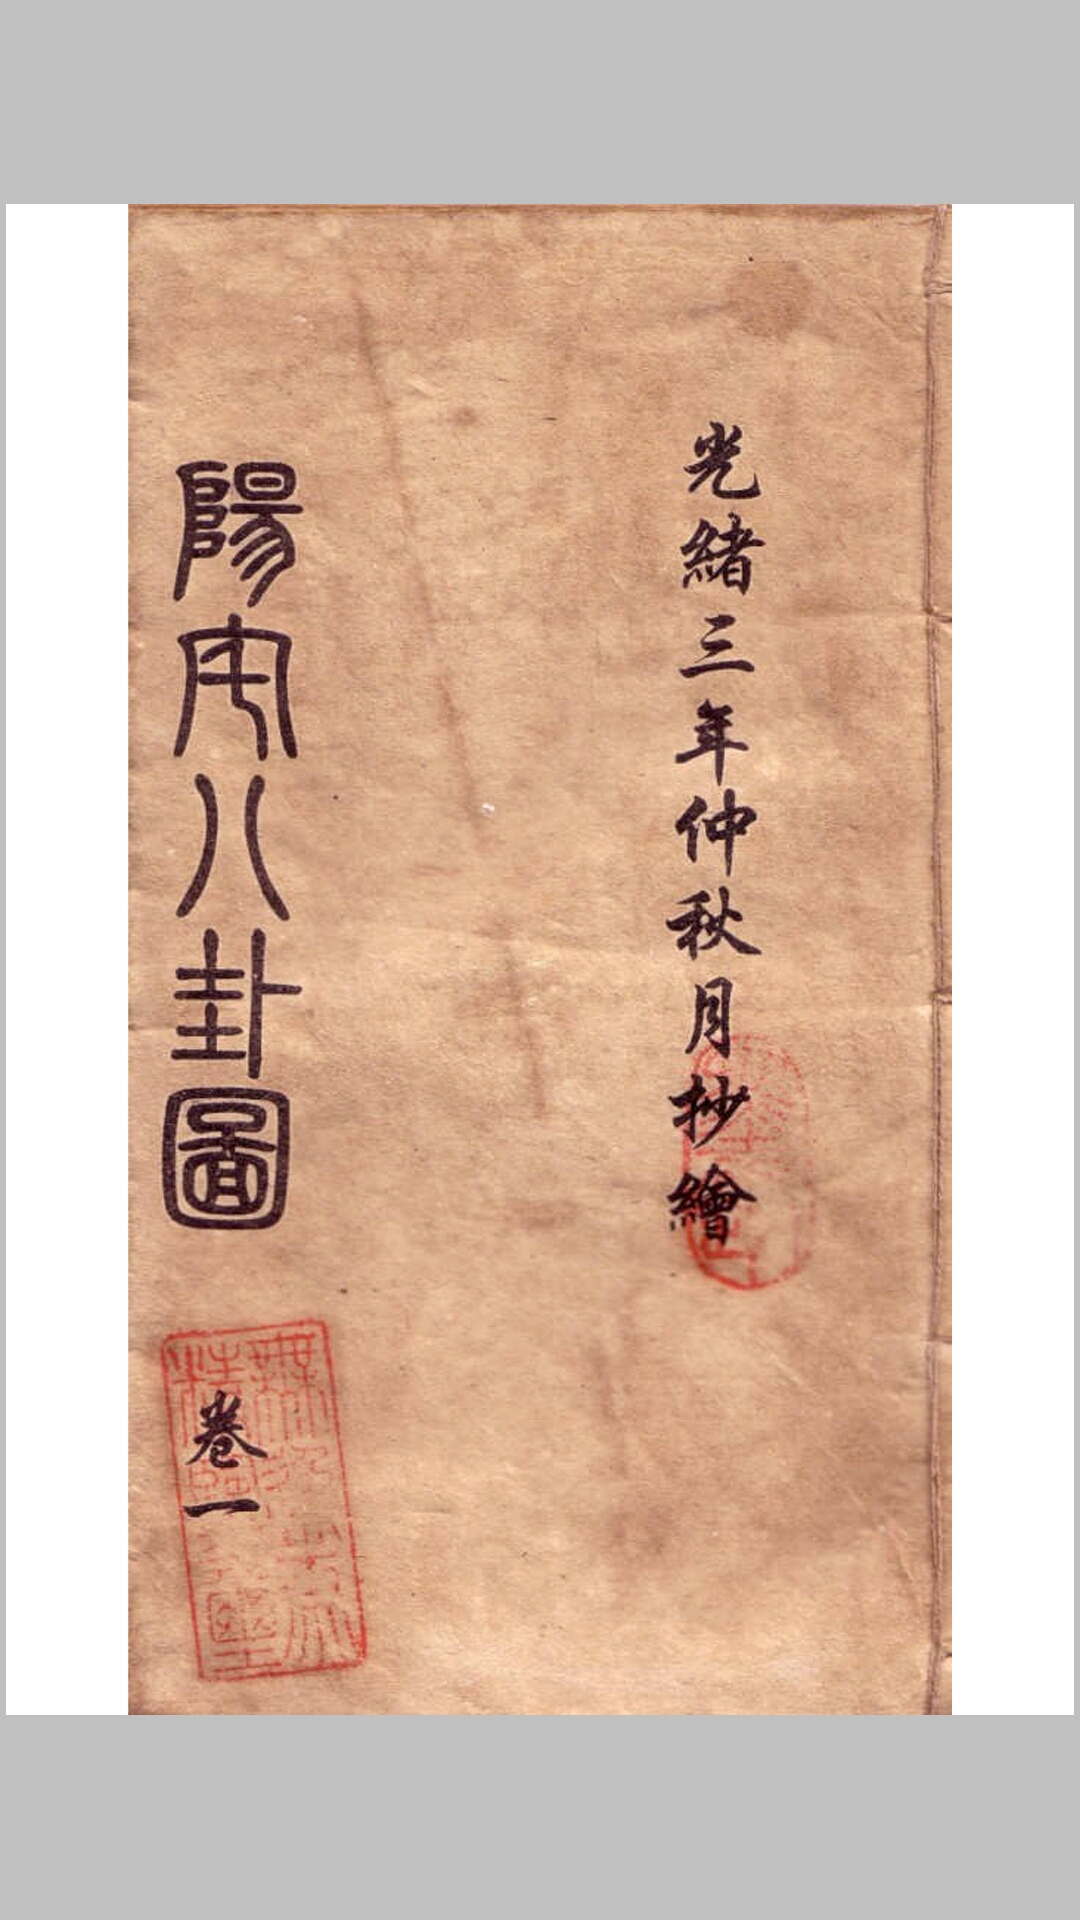 光緒三年仲秋月抄繪
陽宅八卦圖
卷一